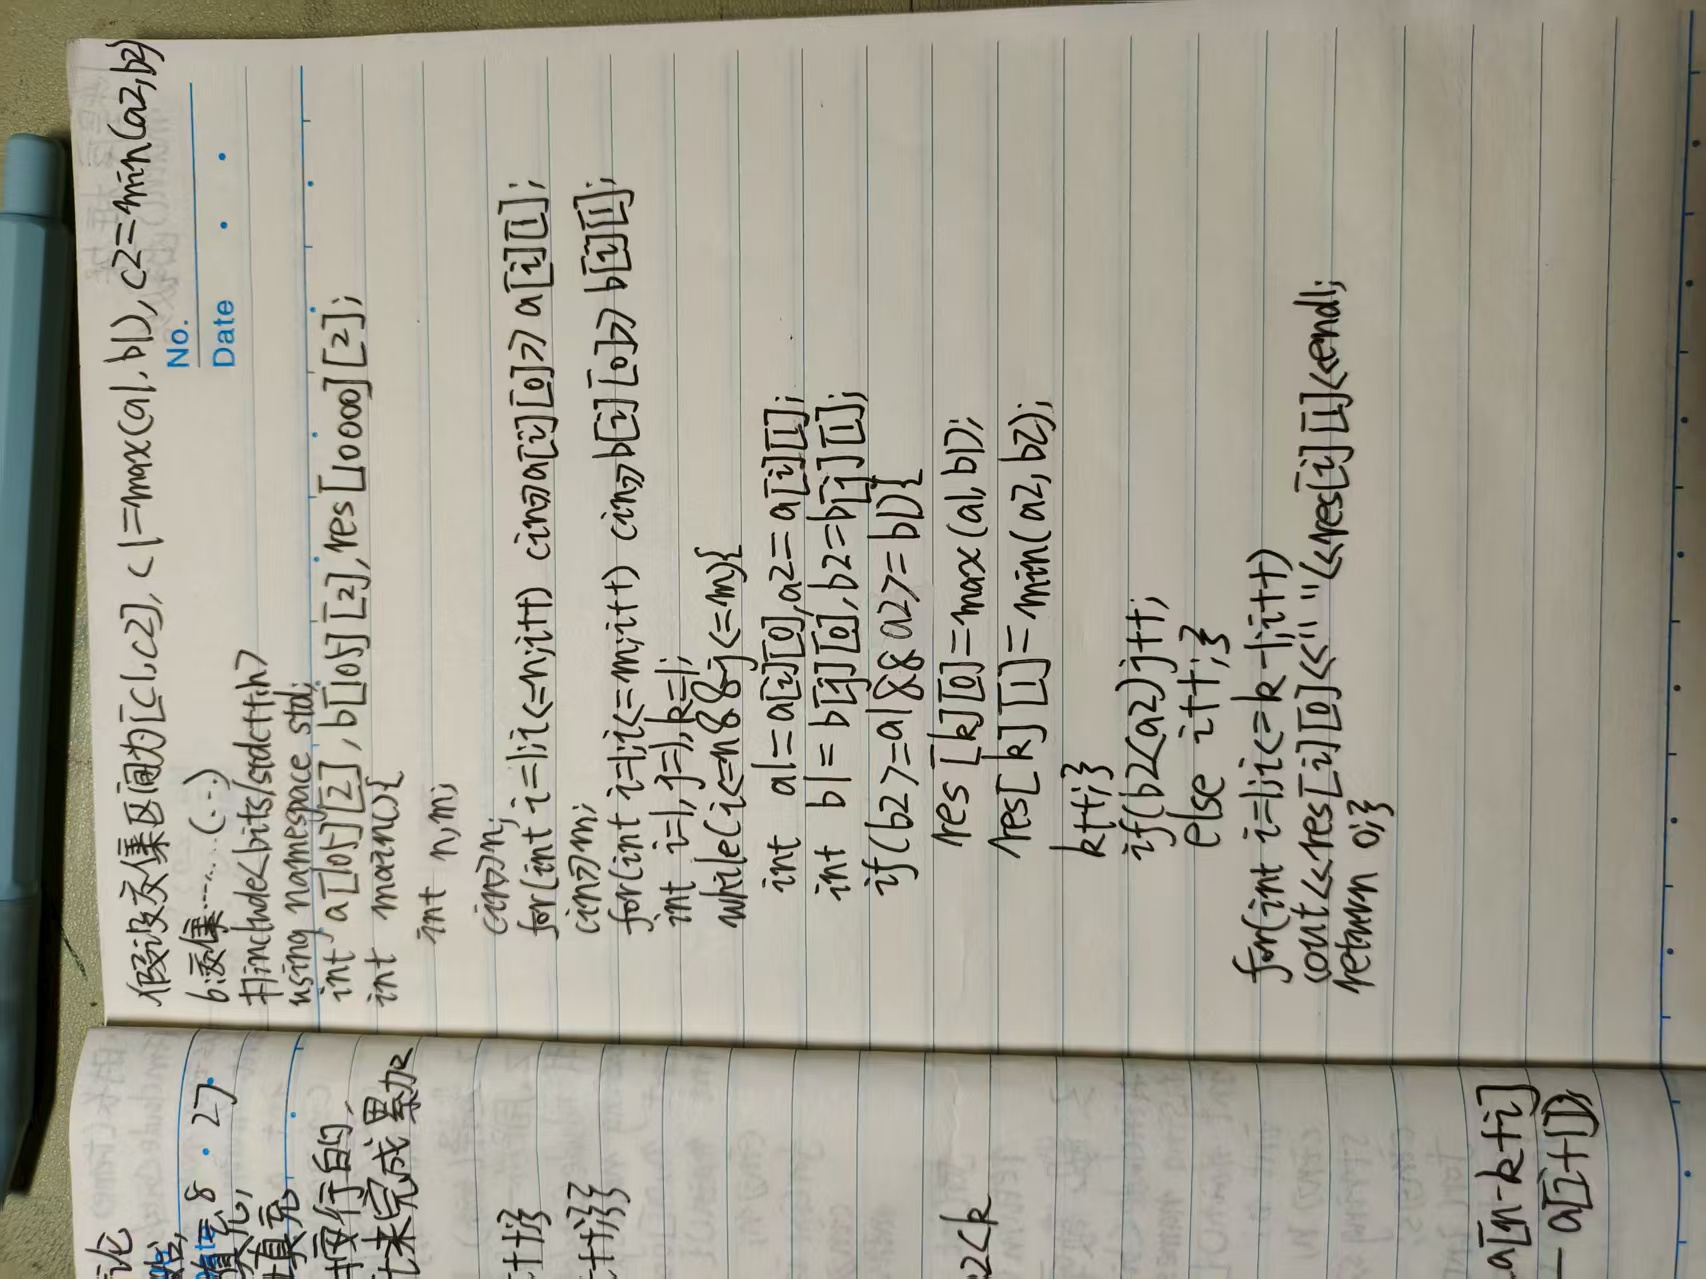 假设交集区间为[c1,c2],c1=max(a1,b1),c2=min(a2,b2)
No.
b交集……(…)
Date
#include<bits/stdc++.h>
using namespace std;
int a[105][2],b[105][2],res[10000][2];
int main(){
int n,m;
cin>>n;
for(int i=1;i<=n;i++) cin>>a[i][0]>>a[i][1];
cin>>m;
for(int i=1;i<=m;i++) cin>>b[i][0]>>b[i][1];
int i=1,j=1,k=1;
while(i<=n&&j<=m){
int a1=a[i][0],a2=a[i][1];
int b1=b[j][0],b2=b[j][1];
if(b2>=a1&&a2>=b1){
res[k][0]=max(a1,b1);
res[k][1]=min(a2,b2);
k++;}
if(b2<a2)j++;
else i++;}
for(int i=1;i<=k-1;i++)
cout<<res[i][0]<<" "<<res[i][1]<<endl;
return 0;}
论
8·27
填充,
填充
按行的,
来完成累加
i++;}
i++;}}}
a2<k
a[n-k+i]
-a[i+1]);